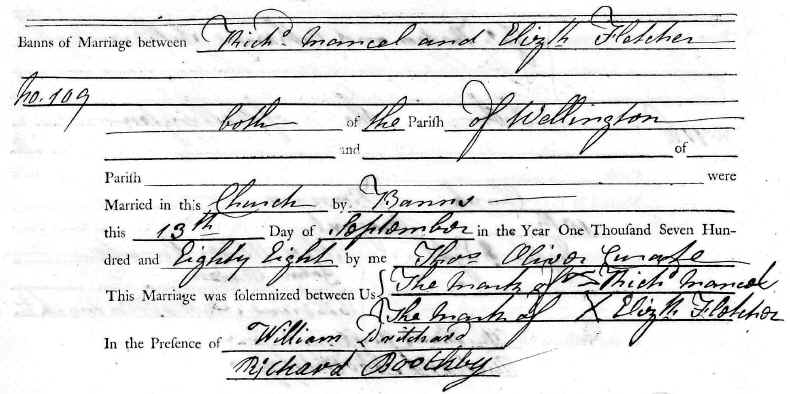 Banns of Marriage between Richd. Mancel and Elizth Fletcher
No. 109
both of the Parish of Wellington
and of
Parish were
Married in this Church by Banns
this 13th Day of September in the Year One Thousand Seven Hun-
dred and Eighty Eight by me Thos Oliver Curate
This Marriage was solemnized between Us { The Mark of X Richd Mancel
The Mark of X Elizth Fletcher
In the Presence of William Pritchard
Richard Boothby